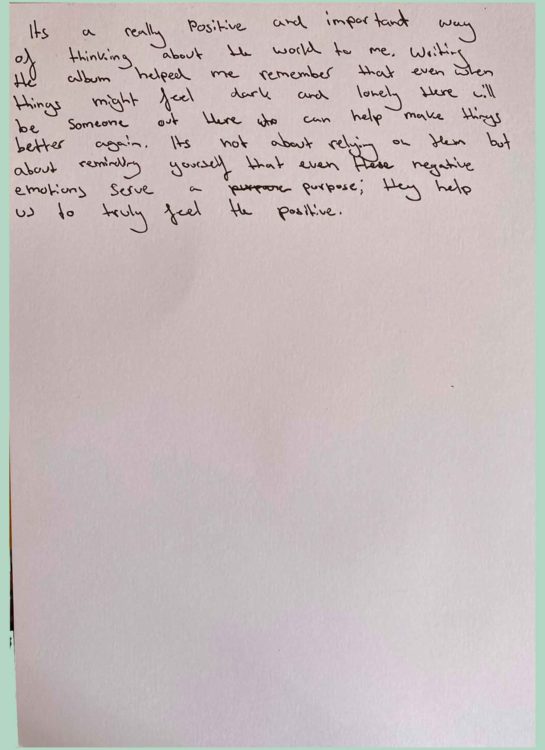 Its a really Positive and important way
of thinking about the world to me. Writing
the album helped me remember that even when
things might feel dark and lonely there will
be someone out there who can help make things
better again. Its not about relying on them but
about reminding yourself that even these negative
emotions serve a purpose purpose; they help
us to truly feel the positive.